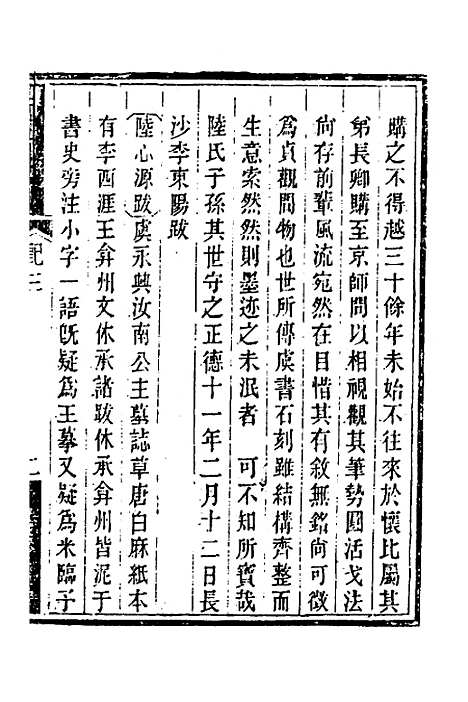 購之不得越三十餘年未始不往來於懷比屬其
弟長卿購至京師間以相視觀其筆勢圓活戈法
尙存前輩風流宛然在目惜其有敘無銘尙可徵
爲貞觀間物也世所傳虞書石刻雖結構齊整而
生意索然然則墨迹之未泯者　可不知所寶哉
陸氏子孫其世守之正德十一年二月十二日長
沙李東陽跋
（陸心源跋）虞永興汝南公主墓誌草唐白麻紙本
有李西涯王弇州文休承諸跋休承弇州皆泥于
書史旁注小字一語旣疑爲王摹又疑爲米臨予